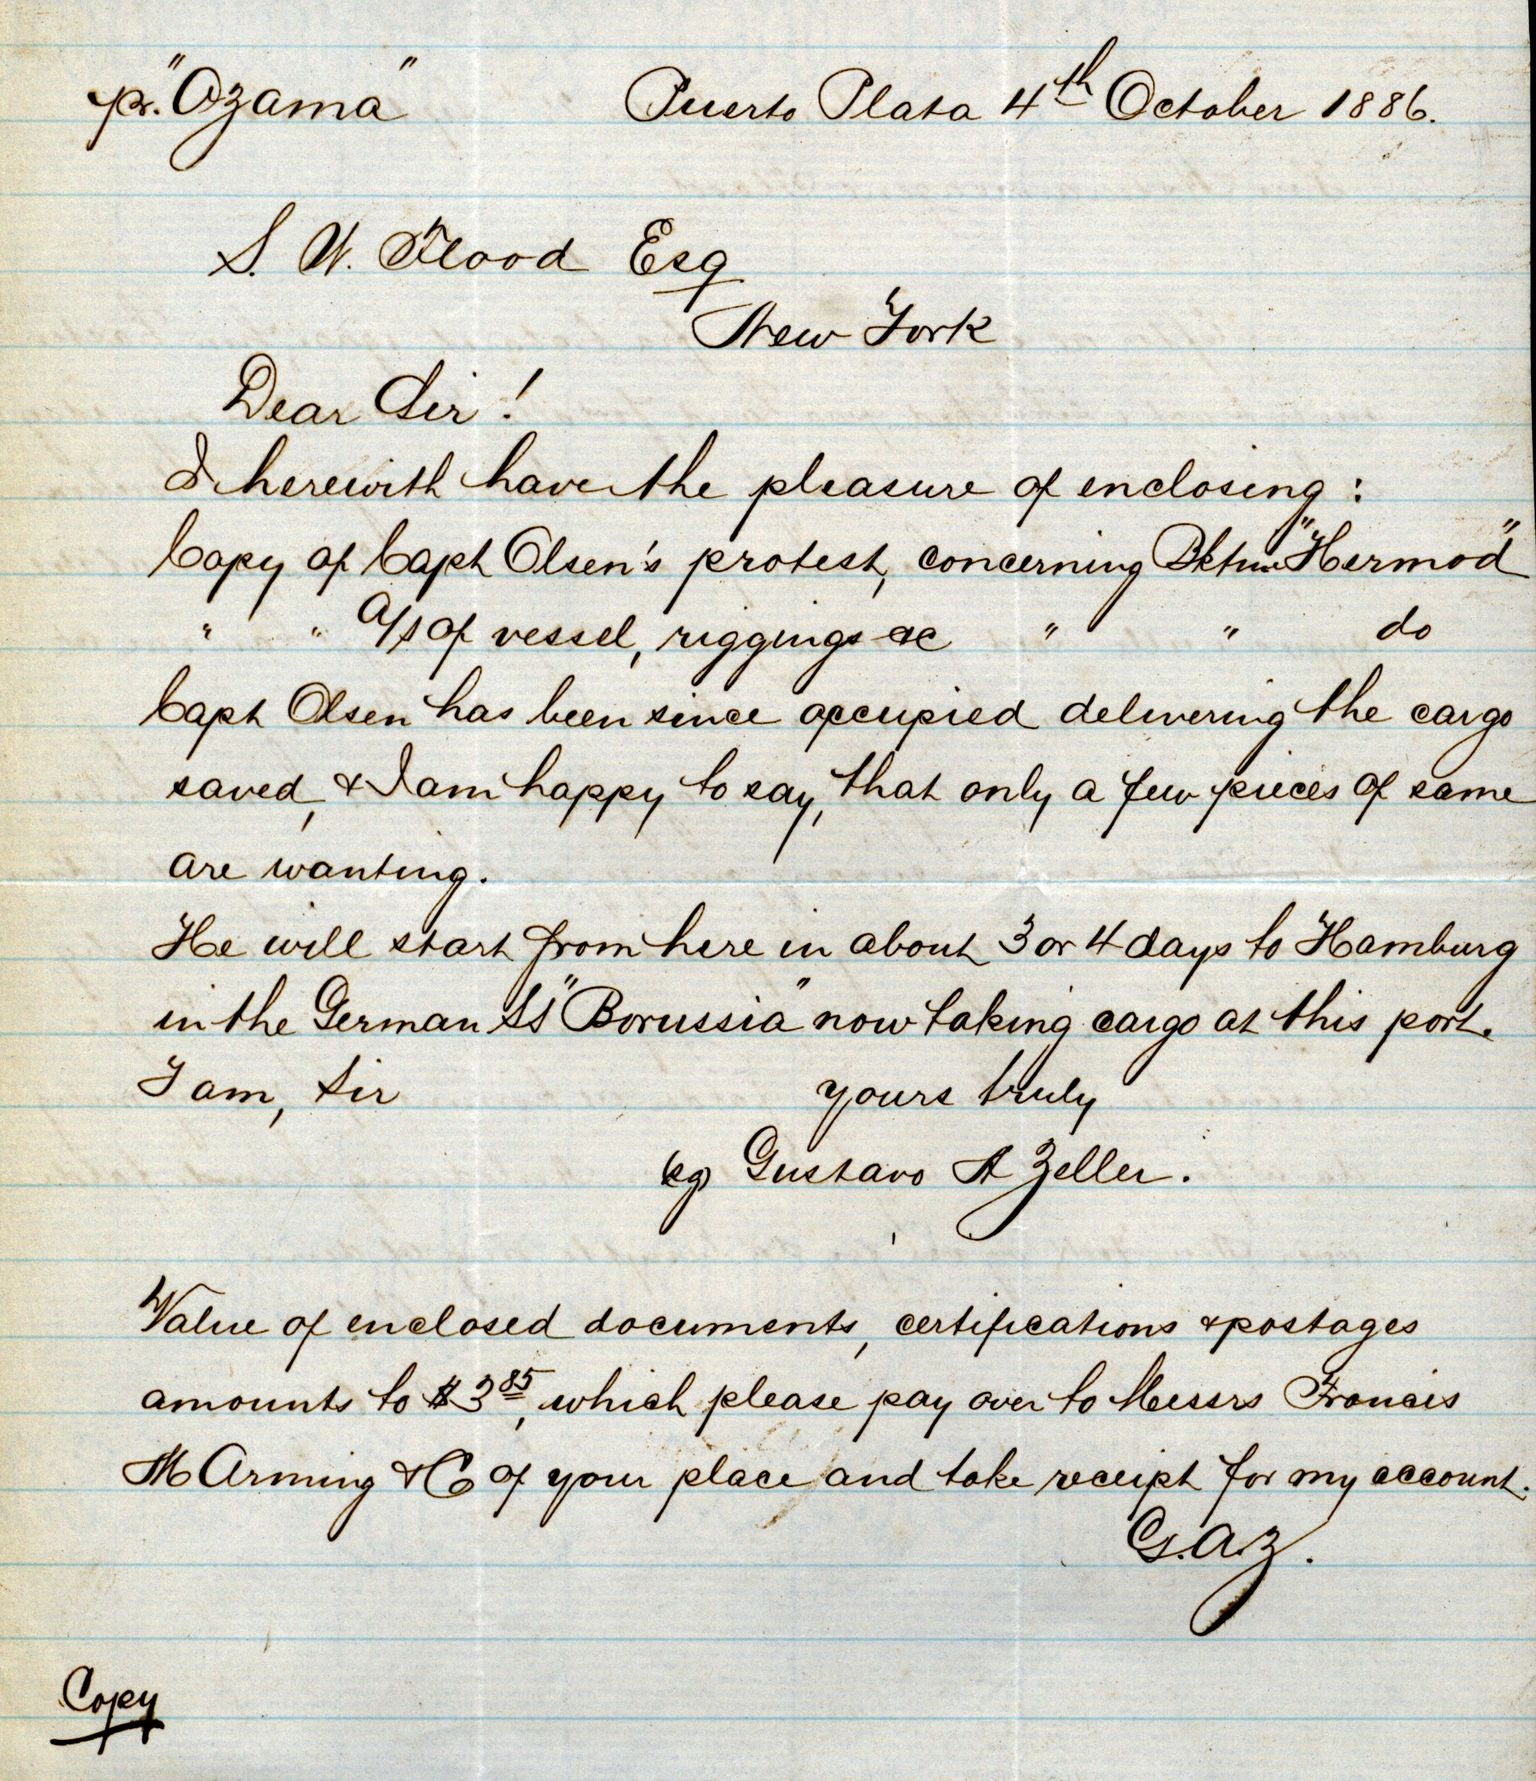 pr. "Ozama" Puerto Plata 4th October 1886.
S. W. Flood Esq
New York
Dear Sir!
I herewith have the pleasure of enclosing:
Copy of Capt Olsen's protest, concerning Bktne "Hermod"
" " A/S of vessel, riggings &c " " do
Capt Olsen has been since occupied delivering the cargo
saved, & I am happy to say, that only a few pieces of same
are wanting.
He will start from here in about 3 or 4 days to Hamburg
in the German SS "Borussia" now taking cargo at this port.
I am, Sir yours truly
Gustavo A Zeller.
Value of enclosed documents, certifications & postages
amounts to $3 85, which please pay over to Messrs Francis
M Arming & Co of your place and take receipt for my account.
G.A.Z.
Copy